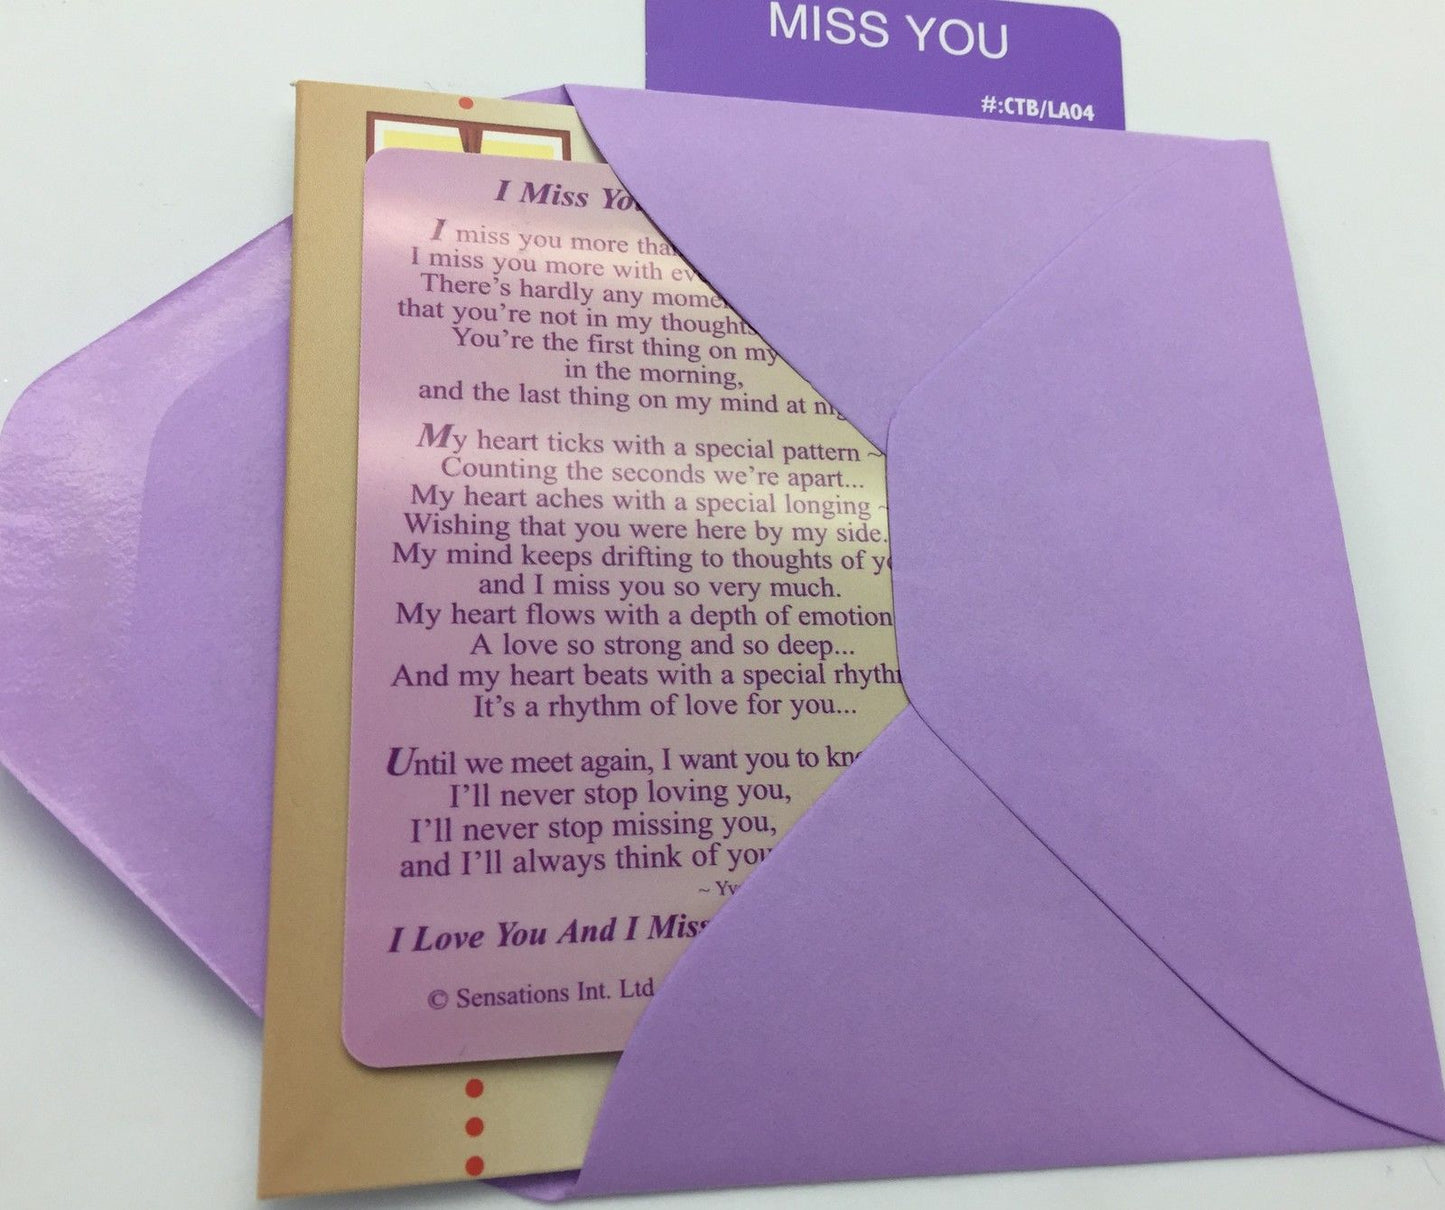 MISS YOU
#:CTB/LA04
I Miss
I miss you more
I miss you more with
There's hardly any
that you're not in my thoughts
You're the first thing on my
in the morning,
and the last thing on my mind at
My heart ticks with a special pattern ~
Counting the seconds we're apart...
My heart aches with a special longing ~
Wishing that you were here by my side.
My mind keeps drifting to thoughts of
and I miss you so very much.
My heart flows with a depth of emotion
A love so strong and so deep...
And my heart beats with a special
It's a rhythm of love for you...
Until we meet again, I want you to
I'll never stop loving you,
I'll never stop missing you,
and I'll always think of
~
I Love You And I Miss
© Sensations Int. Ltd